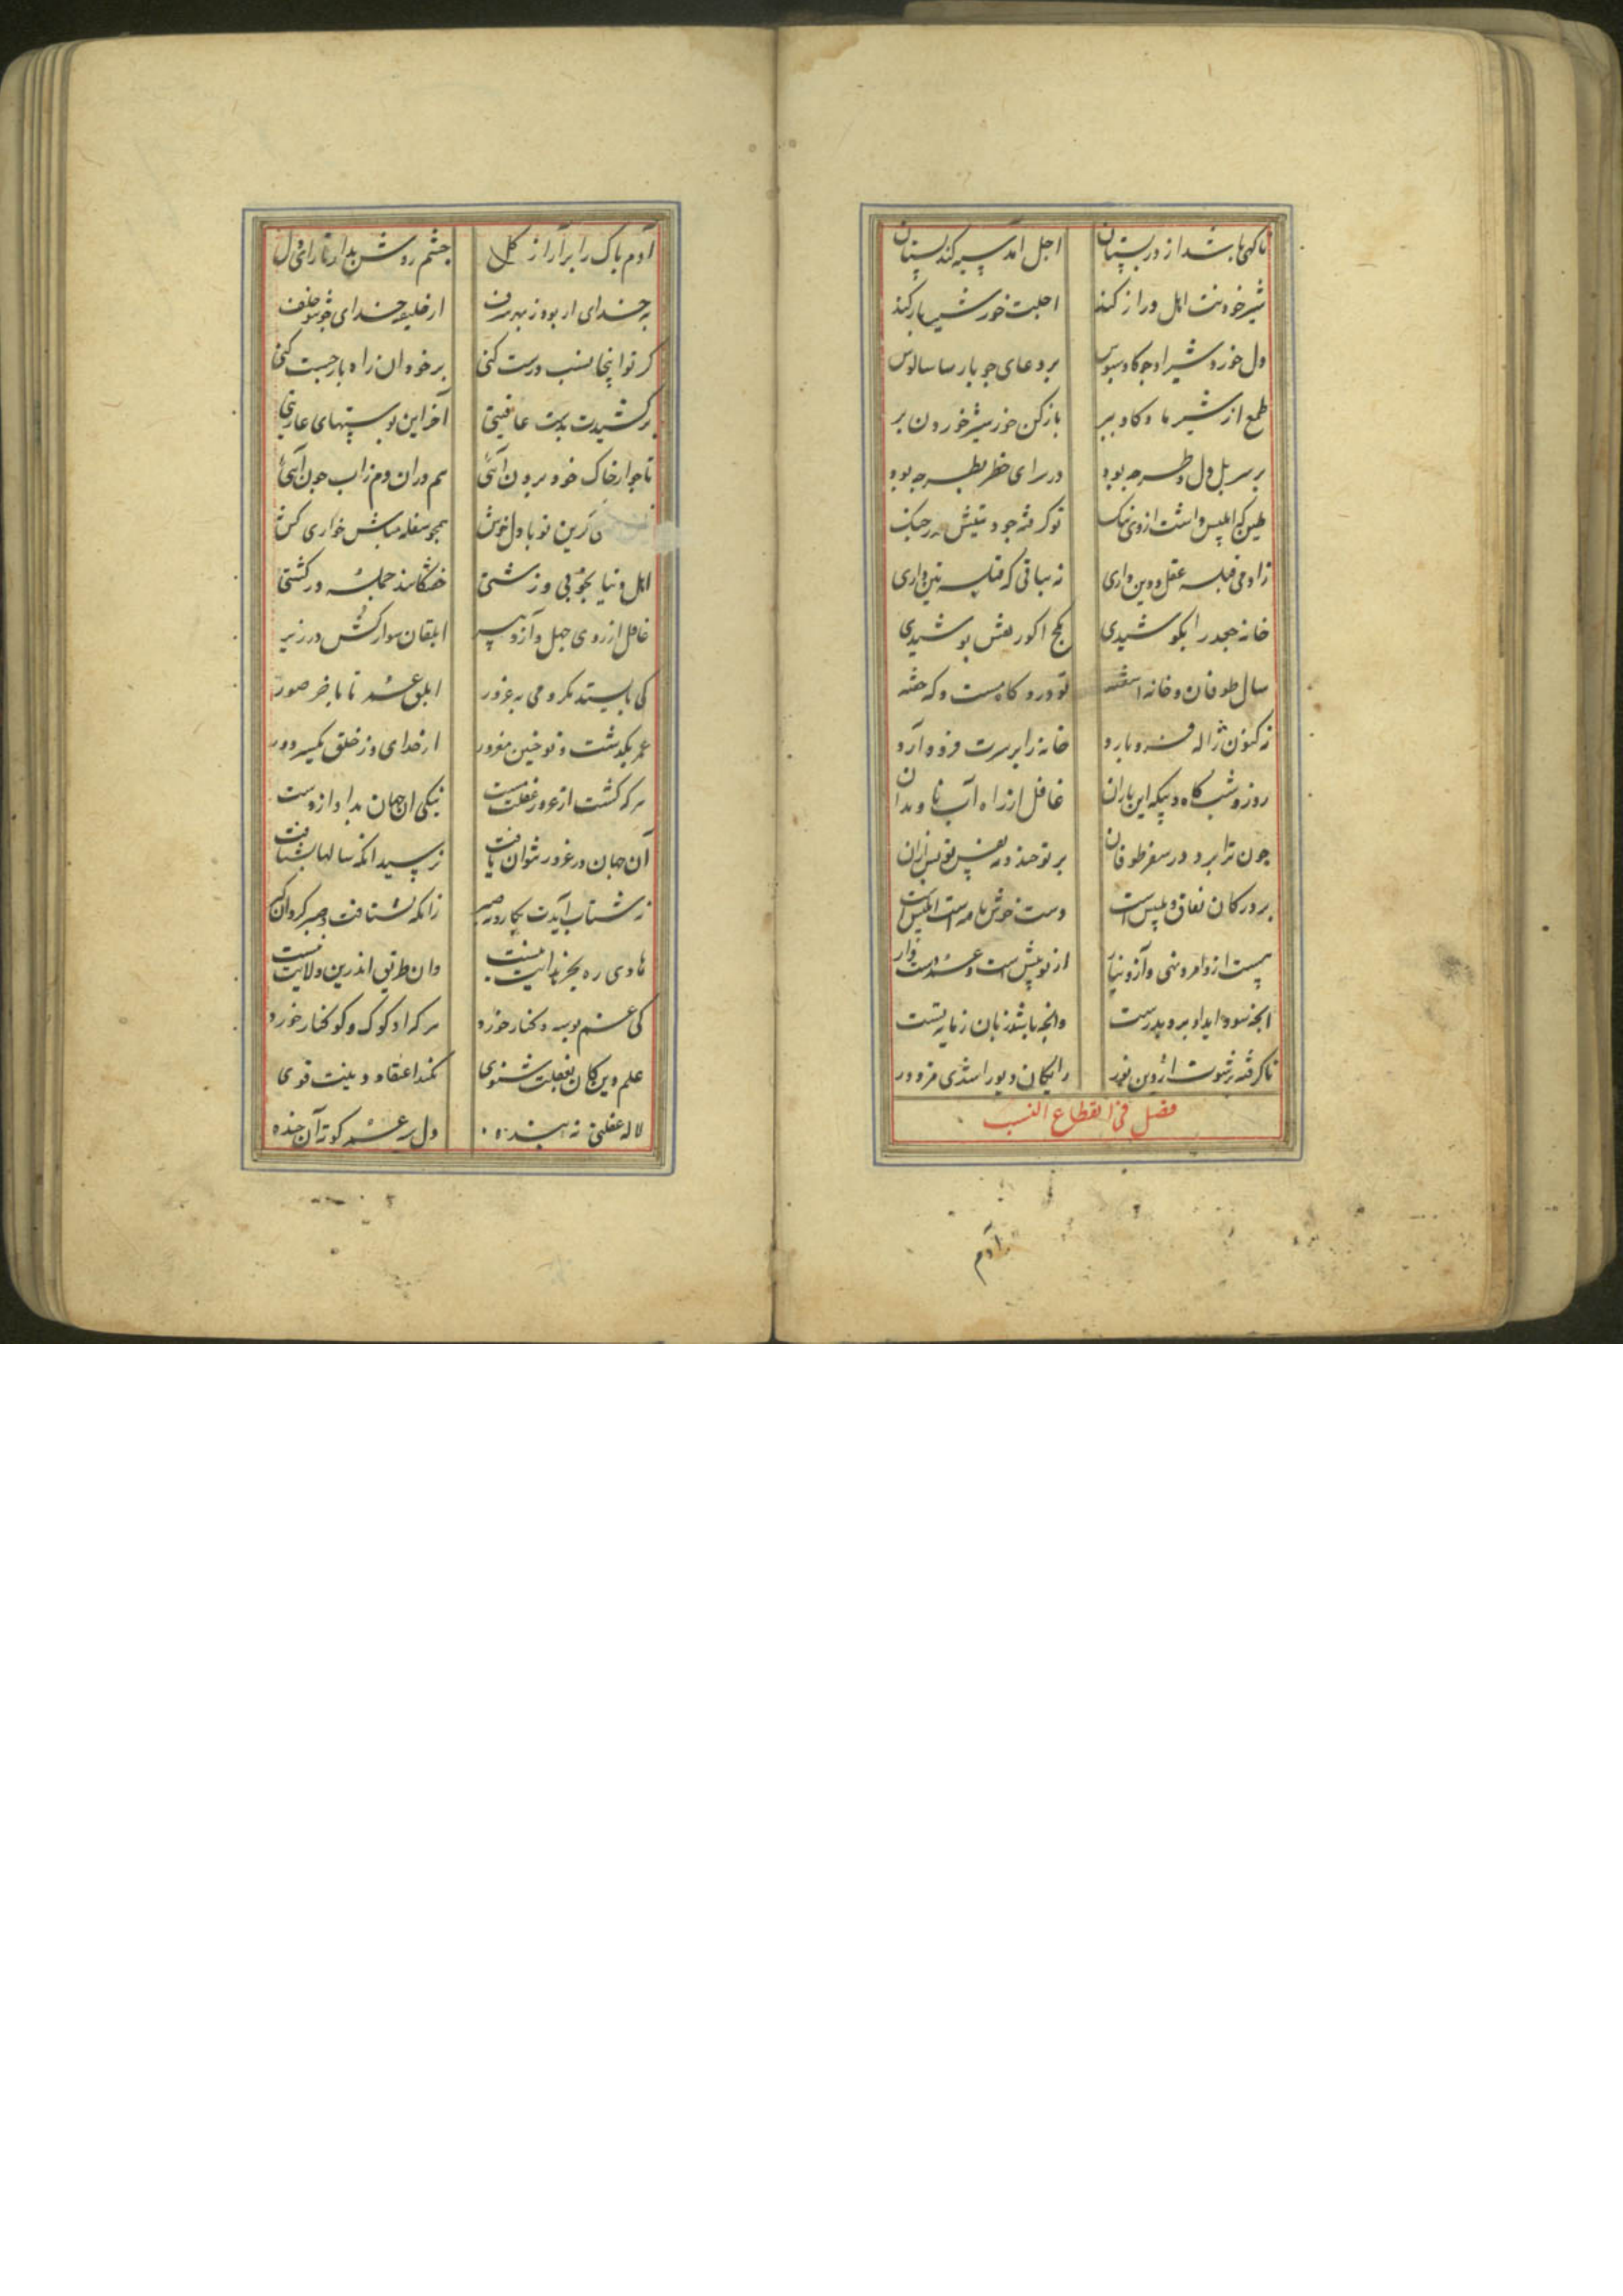 تا کهی باشد از در پستان اجل آمد سیه کند پستان
شیر خوردنت امل دراز کند اجلت خور ز شیر باز کند
دل خورد شیر او چو کاو سبوس بر دعای چو پارسا سالوس
طمع از شیر ما و کاو ببر باز کن خو ز شیر خوردن بر
بر سر پل دل و طرب چه بود در سرای خطر بطر چه بود
طین که ابلیس داشت از وی ننک تو کرفته چو دینش در چنک
ز آدمی قبله عقل و دین داری نه بباقی که قبله تین داری
خانه جغد را بکوشیدی بکج اکور نقش پوشیدی
سال طوفان و خانه آشفته تو درو کاه مست و که خفته
نه کنون ژاله فرو بارد خانه را بر سرت فرود آرد
روز و شب کاه و بیکه این باران غافل از راه آب ناودان
چون ترا برد در سفر طوفان بر تو خندد نفس تو پس ازان
بر در کان نفاق و تلبیس است دست خوش نامه است ابلیس است
پست ازو امر و نهی و آز و نیاز از تو پیش است و عمر دست
آنچه سود آید او برد بدرست وانچه باشد زیان زمایه تست
نا کرفته رشوت از دین نور رایکان دیو را شدی مزدور
فصل فی انقطاع النسب
آدم
آدم پاک را برآر از کل چشم روشن بدار تارای دل
بر خدای از بود ز بهر شرف از خلیفه خدای خلف
کر تو اینجا نسب درست کنی بر خود آن راه باز جست کنی
بر کشیدت بدست عافیتی آخر این پوستینهای عاریتی
تا چو از خاک خود برون آئی هم دران دم ز آب چون آئی
زین تو با دل خوش همچو سفله مباش خواری کش
اهل دنیا بخوبی و زشتی خفتکانند جمله در کشتی
غافل از روی جهل و آز و پسر ابلقان سوارکش در زیر
کی بایستد بکر و می بغرور ابلق عمر تا باخر صور
عمر بکذشت و تو چنین مغرور از خدای و ز خلق یکسر دور
هر که کشت از غرور غفلت مست نیکی آن جهان بداد از دست
آن جهان در غرور نتوان یافت نرسید آنکه سالها بشتافت
نه شتاب آیدت بکار و نه صبر زانکه نشتافت و صبر کرد آن کبر
هادی ره بجز هدایت نیست وان طریق اندرین ولایت نیست
کی غم بوسه و کنار خورد هر که او کوک و کوکنار خورد
علم دین کان بغفلت شنوی نکند اعتقاد و دینت قوی
لاله غفلتی نه بیننده دل بر عمر کوته آن خنده